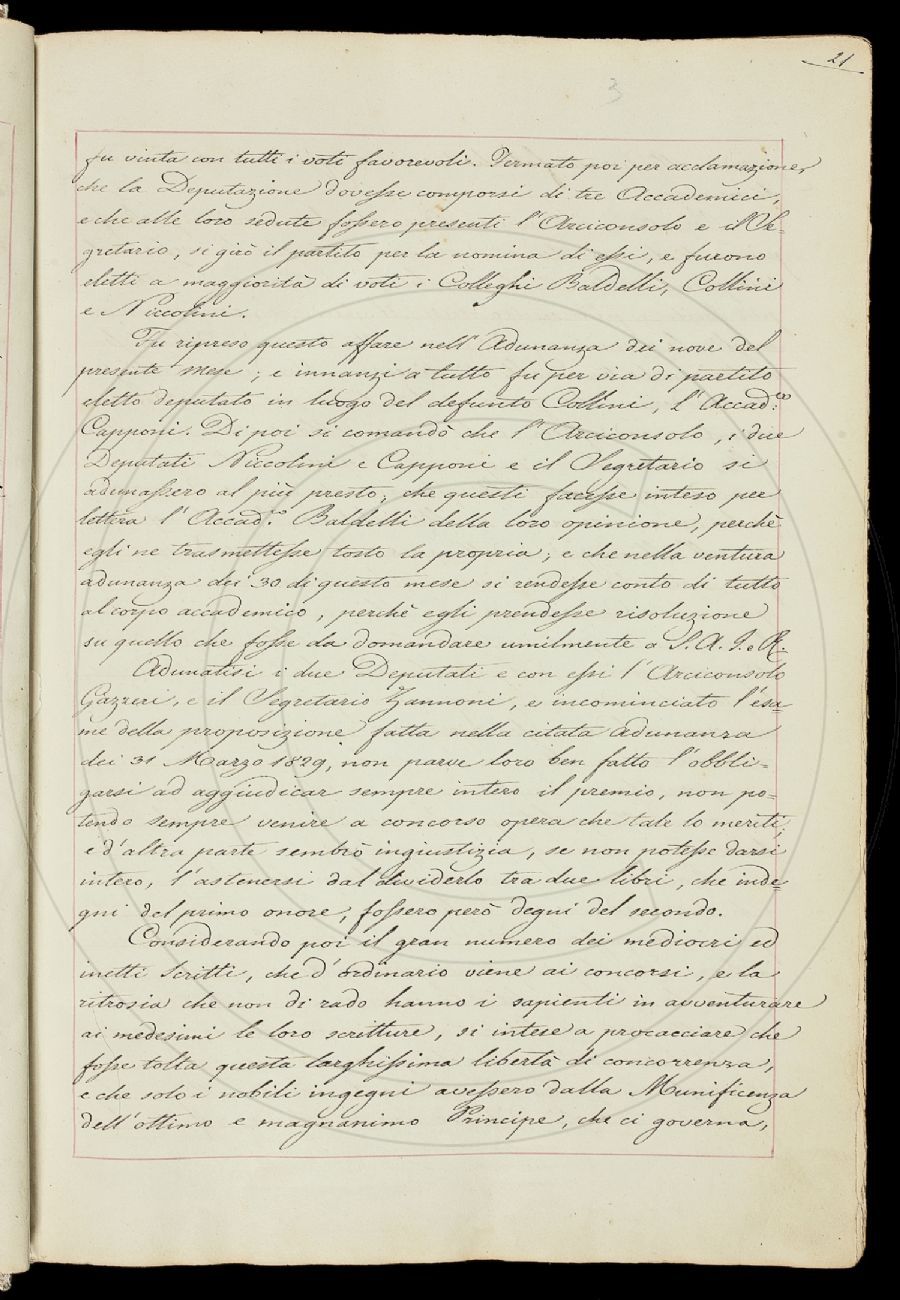 21
3
fu vinta con tutti i voti favorevoli. Fermato poi per acclamazione,
che la Deputazione dovesse comporsi di tre Accademici,
e che alle loro sedute fossero presenti l'Arciconsolo e il Se=
gretario, si girò il partito per la nomina di essi, e furono
eletti a maggiorità di voti i Colleghi Baldelli, Collini
e Niccolini.
Fu ripreso questo affare nell'Adunanza dei nove del
presente mese; e innanzi a tutto fu per via di partito
eletto deputato in luogo del defunto Collini, l'Accad.co
Capponi. Di poi si comandò che l'Arciconsolo, i due
Deputati Niccolini e Capponi e il Segretario si
adunassero al più presto; che questi facesse inteso per
lettera l'Accad.o Baldelli della loro opinione, perchè
egli ne trasmettesse tosto la propria; e che nella ventura
adunanza dei 30 di questo mese si rendesse conto di tutto
al corpo accademico, perchè egli prendesse risoluzione
su quello che fosse da domandare umilmente a S. A. I. e R.
Adunatisi i due Deputati e con essi l'Arciconsolo
Gazzeri, e il Segretario Zannoni, e incominciato l'esa=
me della proposizione fatta nella citata adunanza
dei 31 Marzo 1829, non parve loro ben fatto l'obbli=
garsi ad aggiudicar sempre intero il premio, non po=
tendo sempre venire a concorso opera che tale lo meriti;
e d'altra parte sembrò ingiustizia, se non potesse darsi
intero, l'astenersi dal dividerlo tra due libri, che inde=
gni del primo onore, fossero però degni del secondo.
Considerando poi il gran numero dei mediocri ed
inetti scritti, che d'ordinario viene ai concorsi, e la
ritrosia che non di rado hanno i sapienti in avventurare
ai medesimi le loro scritture, si intese a procacciare che
fosse tolta questa larghissima libertà di concorrenza,
e che solo i nobili ingegni avessero dalla Munificenza
dell'ottimo e magnanimo Principe, che ci governa,